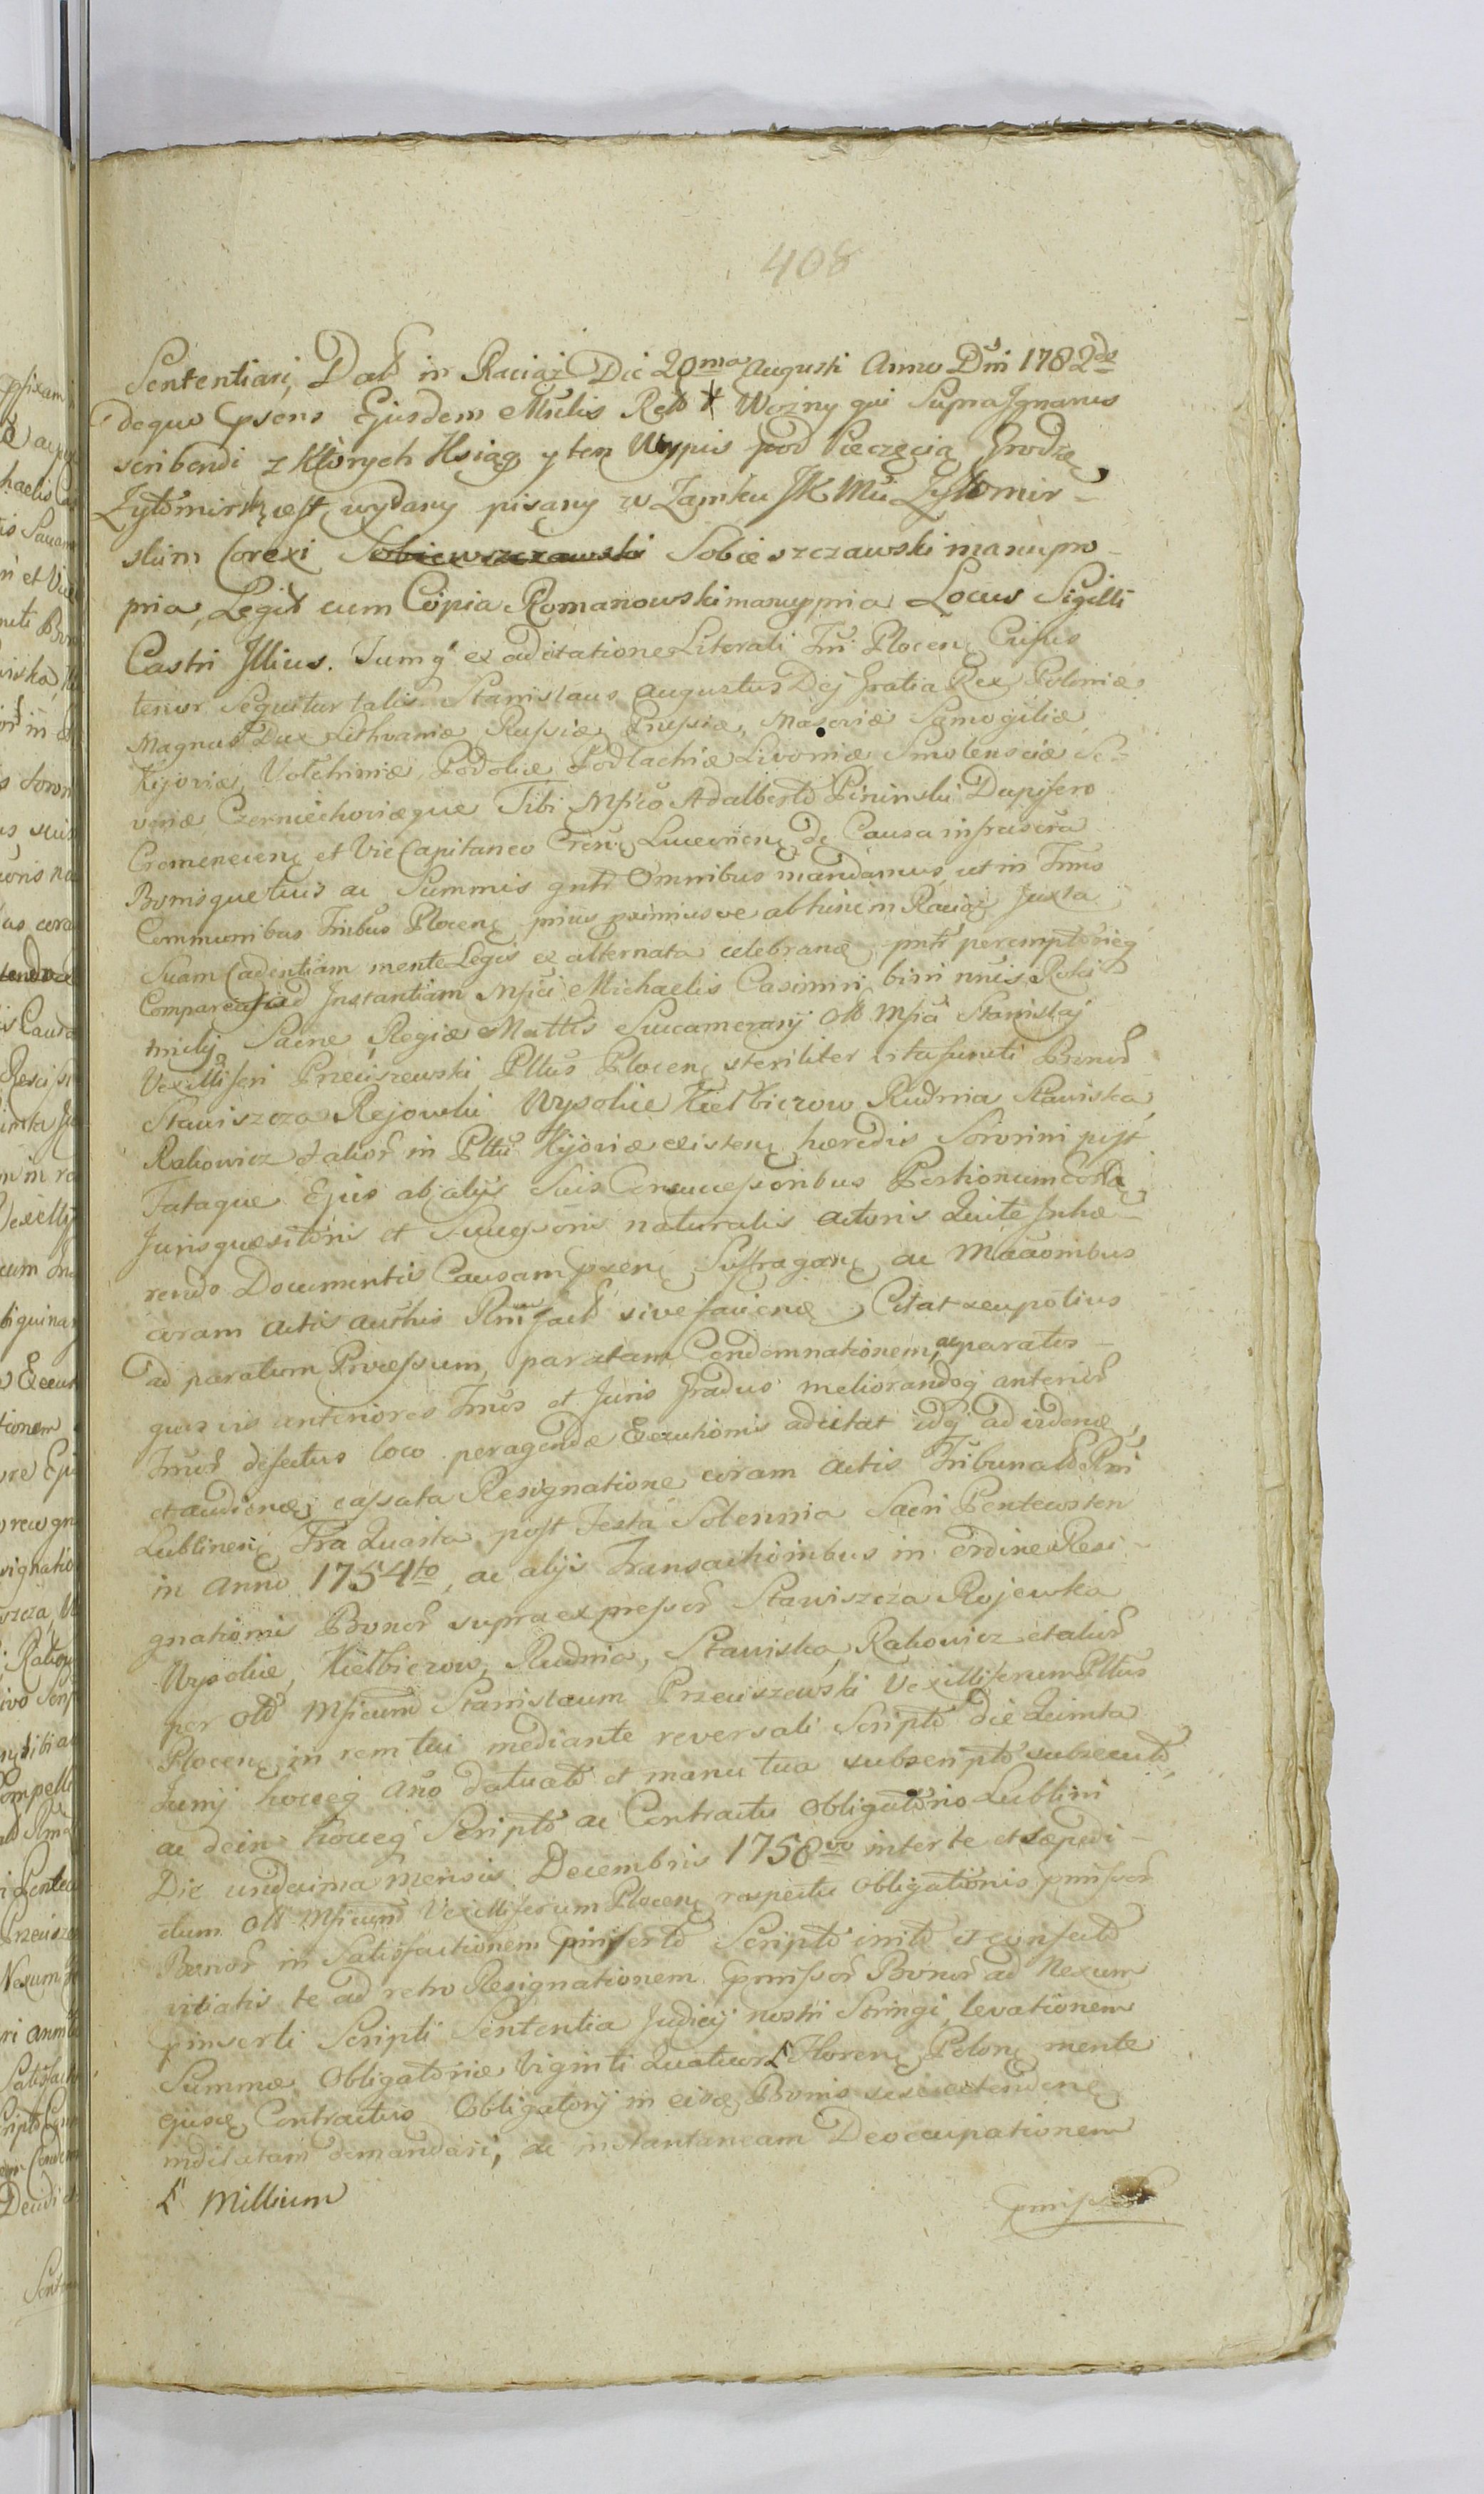 408
Sententiari, Dat in Raciąż Die 20ma Augusti Anno Dni 1782do
de quo psens Ejusdem Mtulis Reło X Wozny qui Supra Ignarus
scribendi z Których Ksiąg y ten Wypis pod Pieczęcią Grodzę
Zytomirsk iest wydany pisany w Zamku JKMci Zytomir-
skim Corexi Sobiewszczawski Sobieszczawski manu pro-
pria, Legit cum Copia Romanowski manuppria Locus Sigilli
Castri Illius. Tumq ex adcitatione Literali Tri Plocen Cujus
tenor Sequitur talis. Stanislaus Augustus Dej Gratia Rex Poloniæ
Magnus Dux Lithvaniæ Russiæ, Prussiæ, Masoviæ Samogitiæ
Kijoviæ, Volhiniæ, Podoliæ Podlachiæ Livoniæ Smolensciæ Se-
veriæ Czerniechoviæque Tibi Mfico Adalberto Pininski Dapifero
Cremenecen et ViceCapitaneo Lucorien de Causa infrascra
Bonisque tuis ac Summis gntr Omnibus mandamus, ut in Tmis
Communibus Tribus Plocen prius primiusve abhinc in Raciąż Juxta
Suam Cadentiam mente Legis ex alternata celebran pntr peremptorieq
Compareas ad Instantiam Mfici Michaelis Casimiri bini nnis Roki
tnicky Sacræ Regiæ Mattis Succamerarij Olt Mfici Stanislaj
Vexilliferi Przeciszewski Pttus Plocen steriliter vita functi Bonor
Stawiszcza Rejowki Wysokie Kiełbierow Rudnia Stawiska,
Rakowicz et alior in Pttu Kijoviæ existen hæredis Sororini post
Fataque Ejus ab alijs Suis Consuccessoribus Portionum
Juris quæsitoris et Successoris naturalis Actoris Quite Inhæ-
rendo Documentis Causam psen Suffragan ac Mationibus
coram actis Authis Rmi fact sive faciend Citat seu potius
ad paratum Processum, paratam Condemnationem, ac paratos-
quosvis anteriores Tmos et Juris Gradus meliorandoq anterior
Tmor defectus loco peragendæ Executionis adcitat idq ad vidend
et audiend cassata Resignatione coram Actis Tribunalis Rni
Lublinen Fra Quarta post Festa Solennia Sacri Pentecosten
in Anno 1754to, ac alijs Transactionibus in ordine Resi-
gnationis Bonor supra expressor Stawiszcza Rojewka
Wysokie, Kiełbierow, Rudnia, Stawiska, Rakowicz et alior
per Olt Mficum Stanislaum Przeciszewski Vexilliferum Pttus
Plocen in rem tui mediante reversali Scripto die Quinta
Junij hocceq Ano datuato et manu tua subscripto subsecuto,
ac dein hocceq Scripto ac Contractu Obligatorio Lublini
Die undecima mensis Decembris 1758vo inter te et sæpedi-
ctum Olt Mficum Vexilliferum Plocen respectu Obligationis pmissor
Bonor in Satisfactionem pinserto Scripto inito et confecto
vitiatis te ad retro Resignationem pmissor Bonor ad Nexum
pinserti Scripti Sententia Judicij nostri Stringi, levationem
Summæ Obligatoriæ Viginti Quatuor L Floren Polon mente
ejusd Contractus Obligatorij in eisd Bonis sese extenden
inditatam demandari, ac instantaneam Deoccupationem
L Millium
pmissor